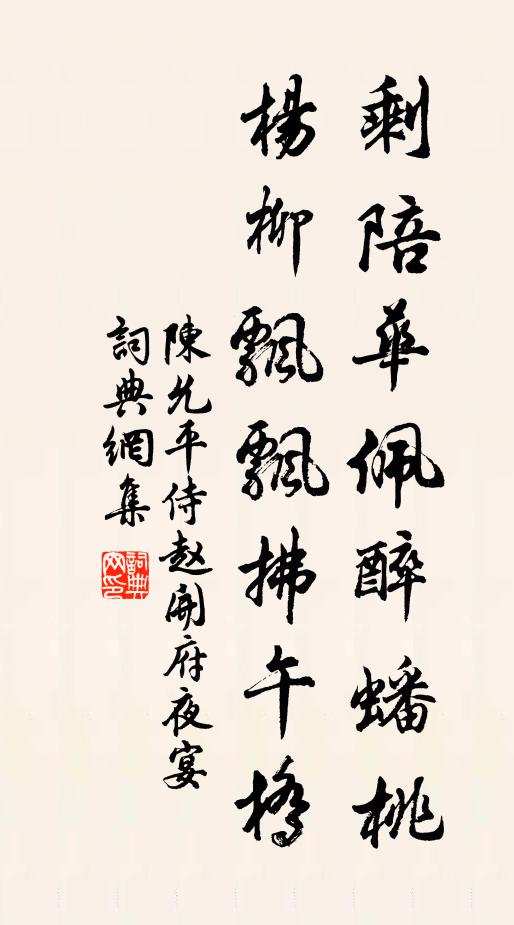 剩陪華佩醉蟠桃
楊柳飄飄拂午橋
陳允平侍赵開府夜宴
詞典網集
詞典网印